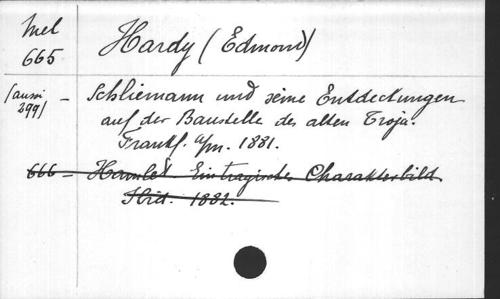 Mel
665
Hardy (Edmond)
(aussi
299) – Schliemann und seine Entdeckungen
auf der Baustelle des alten Troja.
Frankf. a/m. 1881.
666 – Hamlet. Ein tragisches Charakterbild.
Ibid. 1882.